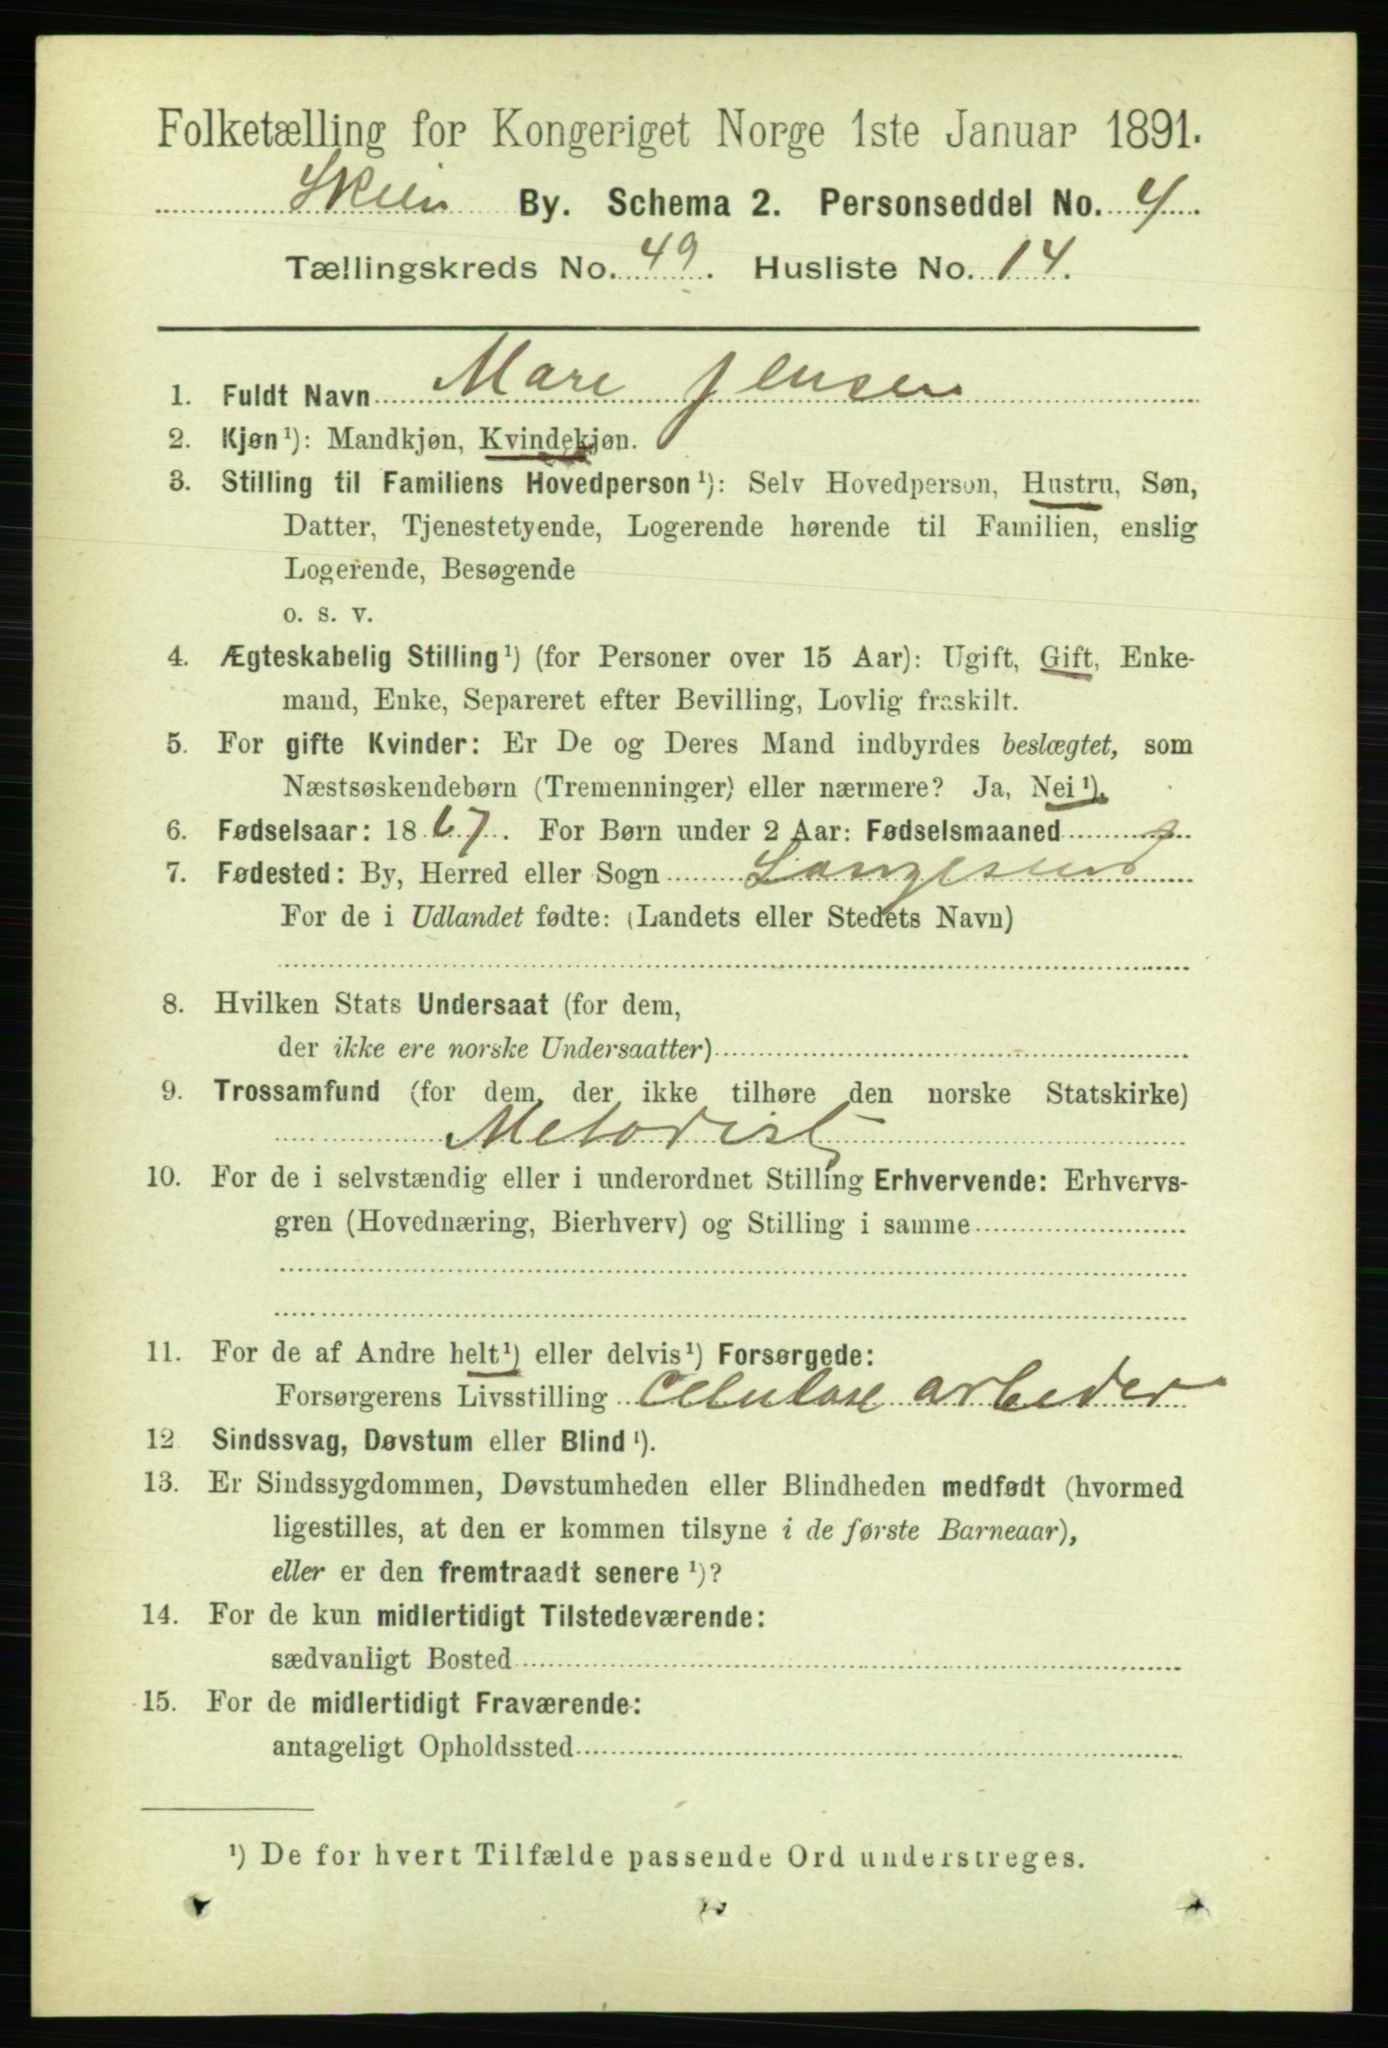 Folketælling for Kongeriget Norge 1ste Januar 1891.
Skien By. Schema 2. Personseddel No. 4
Tællingskreds No. 49. Husliste No. 14.
1. Fuldt Navn Mare Jensen
2. Kjøn¹): Mandkjøn, Kvindekjøn.
3. Stilling til Familiens Hovedperson¹): Selv Hovedperson, Hustru, Søn,
Datter, Tjenestetyende, Logerende hørende til Familien, enslig
Logerende, Besøgende
o. s. v.
4. Ægteskabelig Stilling¹) (for Personer over 15 Aar): Ugift, Gift, Enke-
mand, Enke, Separeret efter Bevilling, Lovlig fraskilt.
5. For gifte Kvinder: Er De og Deres Mand indbyrdes beslægtet, som
Næstsøskendebørn (Tremenninger) eller nærmere? Ja, Nei¹).
6. Fødselsaar: 1867. For Børn under 2 Aar: Fødselsmaaned
7. Fødested: By, Herred eller Sogn Langesund
For de i Udlandet fødte: (Landets eller Stedets Navn)
8. Hvilken Stats Undersaat (for dem,
der ikke ere norske Undersaatter)
9. Trossamfund (for dem, der ikke tilhøre den norske Statskirke)
Metodist
10. For de i selvstændig eller i underordnet Stilling Erhvervende: Erhvervs-
gren (Hovednæring, Bierhverv) og Stilling i samme
11. For de af Andre helt¹) eller delvis¹) Forsørgede:
Forsørgerens Livsstilling Celulose arbeder
12 Sindssvag, Døvstum eller Blind¹).
13. Er Sindssygdommen, Døvstumheden eller Blindheden medfødt (hvormed
ligestilles, at den er kommen tilsyne i de første Barneaar),
eller er den fremtraadt senere¹)?
14. For de kun midlertidigt Tilstedeværende:
sædvanligt Bosted
15. For de midlertidigt Fraværende:
antageligt Opholdssted
¹) De for hvert Tilfælde passende Ord understreges.